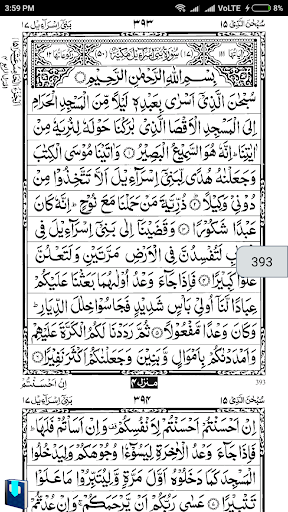 3:59 PM VoLTE
سُبْحٰنَ الَّذِىْٓ ١٥ ٣٩٣ بَنِىْٓ اِسْرَآءِيْل ١٧
بِسْمِ اللّٰهِ الرَّحْمٰنِ الرَّحِيْمِ
سُبْحٰنَ الَّذِىْٓ اَسْرٰى بِعَبْدِهٖ لَيْلًا مِّنَ الْمَسْجِدِ الْحَرَامِ
اِلَى الْمَسْجِدِ الْاَقْصَا الَّذِىْ بٰرَكْنَا حَوْلَهٗ لِنُرِيَهٗ مِنْ
اٰيٰتِنَا ؕ اِنَّهٗ هُوَ السَّمِيْعُ الْبَصِيْرُ ﴿١﴾ وَاٰتَيْنَا مُوْسَى الْكِتٰبَ
وَجَعَلْنٰهُ هُدًى لِّبَنِىْٓ اِسْرَآءِيْلَ اَلَّا تَتَّخِذُوْا مِنْ
دُوْنِىْ وَكِيْلًا ﴿٢﴾ ذُرِّيَّةَ مَنْ حَمَلْنَا مَعَ نُوْحٍ ؕ اِنَّهٗ كَانَ
عَبْدًا شَكُوْرًا ﴿٣﴾ وَقَضَيْنَآ اِلٰى بَنِىْٓ اِسْرَآءِيْلَ فِى
الْكِتٰبِ لَتُفْسِدُنَّ فِى الْاَرْضِ مَرَّتَيْنِ وَلَتَعْلُنَّ
عُلُوًّا كَبِيْرًا ﴿٤﴾ فَاِذَا جَآءَ وَعْدُ اُوْلٰىهُمَا بَعَثْنَا عَلَيْكُمْ
عِبَادًا لَّنَآ اُولِىْ بَاْسٍ شَدِيْدٍ فَجَاسُوْا خِلٰلَ الدِّيَارِ ؕ
وَكَانَ وَعْدًا مَّفْعُوْلًا ﴿٥﴾ ثُمَّ رَدَدْنَا لَكُمُ الْكَرَّةَ عَلَيْهِمْ
وَاَمْدَدْنٰكُمْ بِاَمْوَالٍ وَّبَنِيْنَ وَجَعَلْنٰكُمْ اَكْثَرَ نَفِيْرًا ﴿٦﴾
393
منزل ٤ اِنْ اَحْسَنْتُمْ
393
سُبْحٰنَ الَّذِىْٓ ١٥ ٣٩٤ بَنِىْٓ اِسْرَآءِيْل ١٧
اِنْ اَحْسَنْتُمْ اَحْسَنْتُمْ لِاَنْفُسِكُمْ وَاِنْ اَسَاْتُمْ فَلَهَا ؕ
فَاِذَا جَآءَ وَعْدُ الْاٰخِرَةِ لِيَسُوْٓءٗا وُجُوْهَكُمْ وَلِيَدْخُلُوا
الْمَسْجِدَ كَمَا دَخَلُوْهُ اَوَّلَ مَرَّةٍ وَّلِيُتَبِّرُوْا مَا عَلَوْا
تَتْبِيْرًا ﴿٧﴾ عَسٰى رَبُّكُمْ اَنْ يَّرْحَمَكُمْ ۚ وَاِنْ عُدْتُّمْ